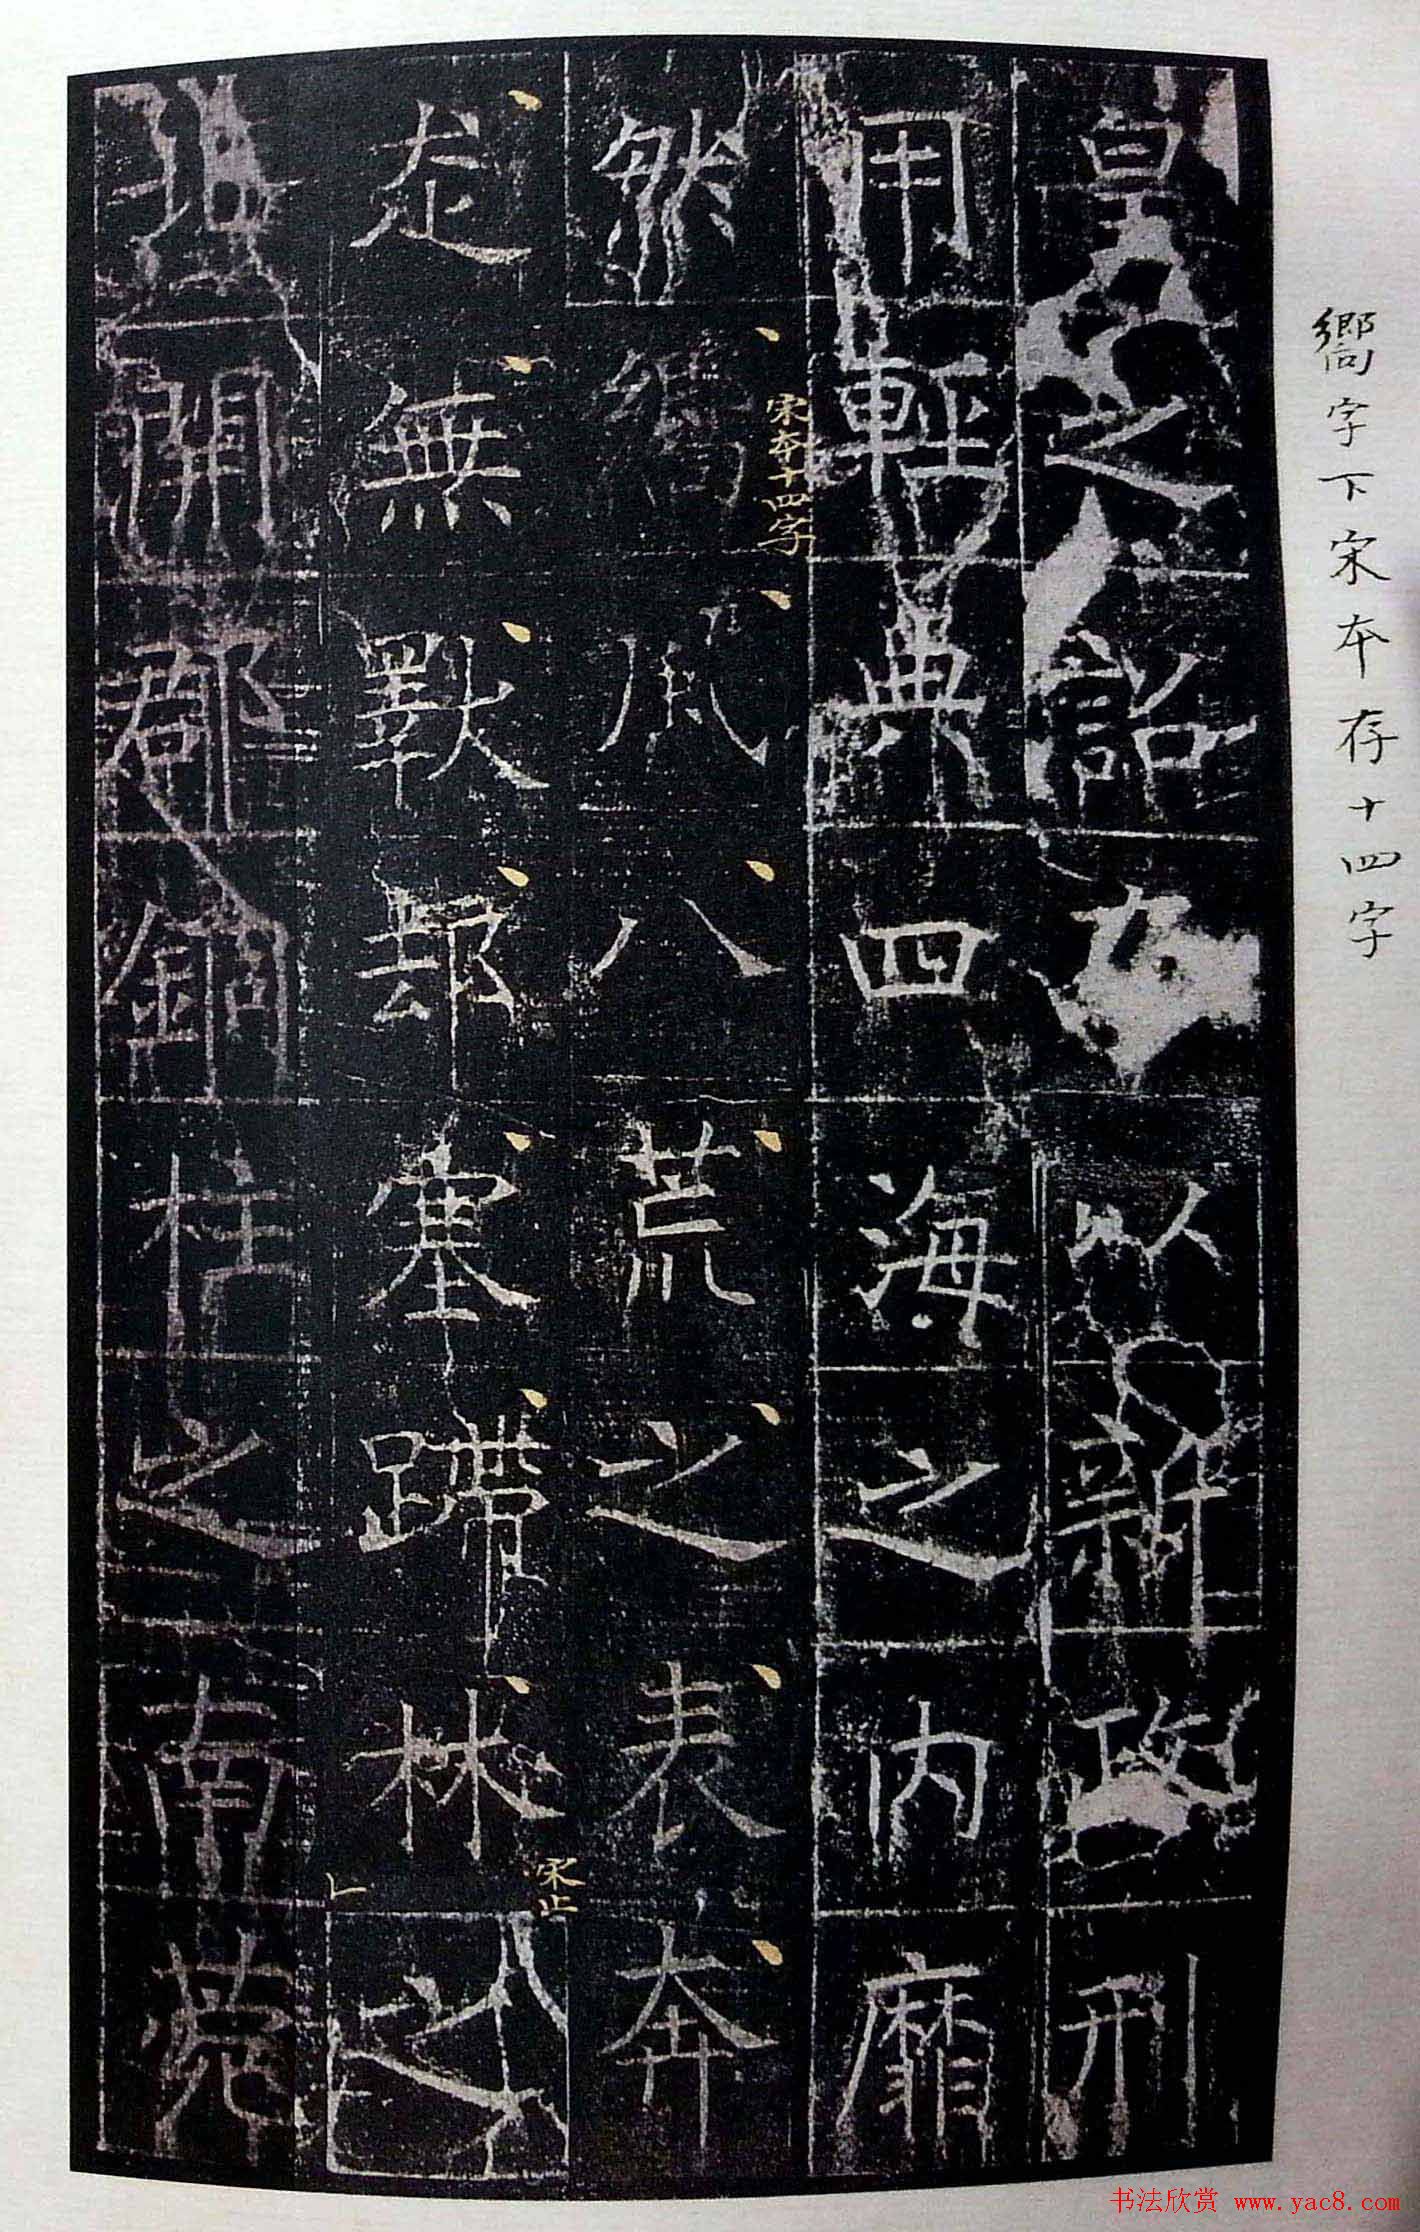 嚮字下宋本存十四字
皇之詔以新政刑
用輕典四海之内靡
然嚮風八荒之表奔
宋本十四字
走無斁却塞蹛林之
宋止
北開郡銅柱之南
书法欣赏 www.yac8.com